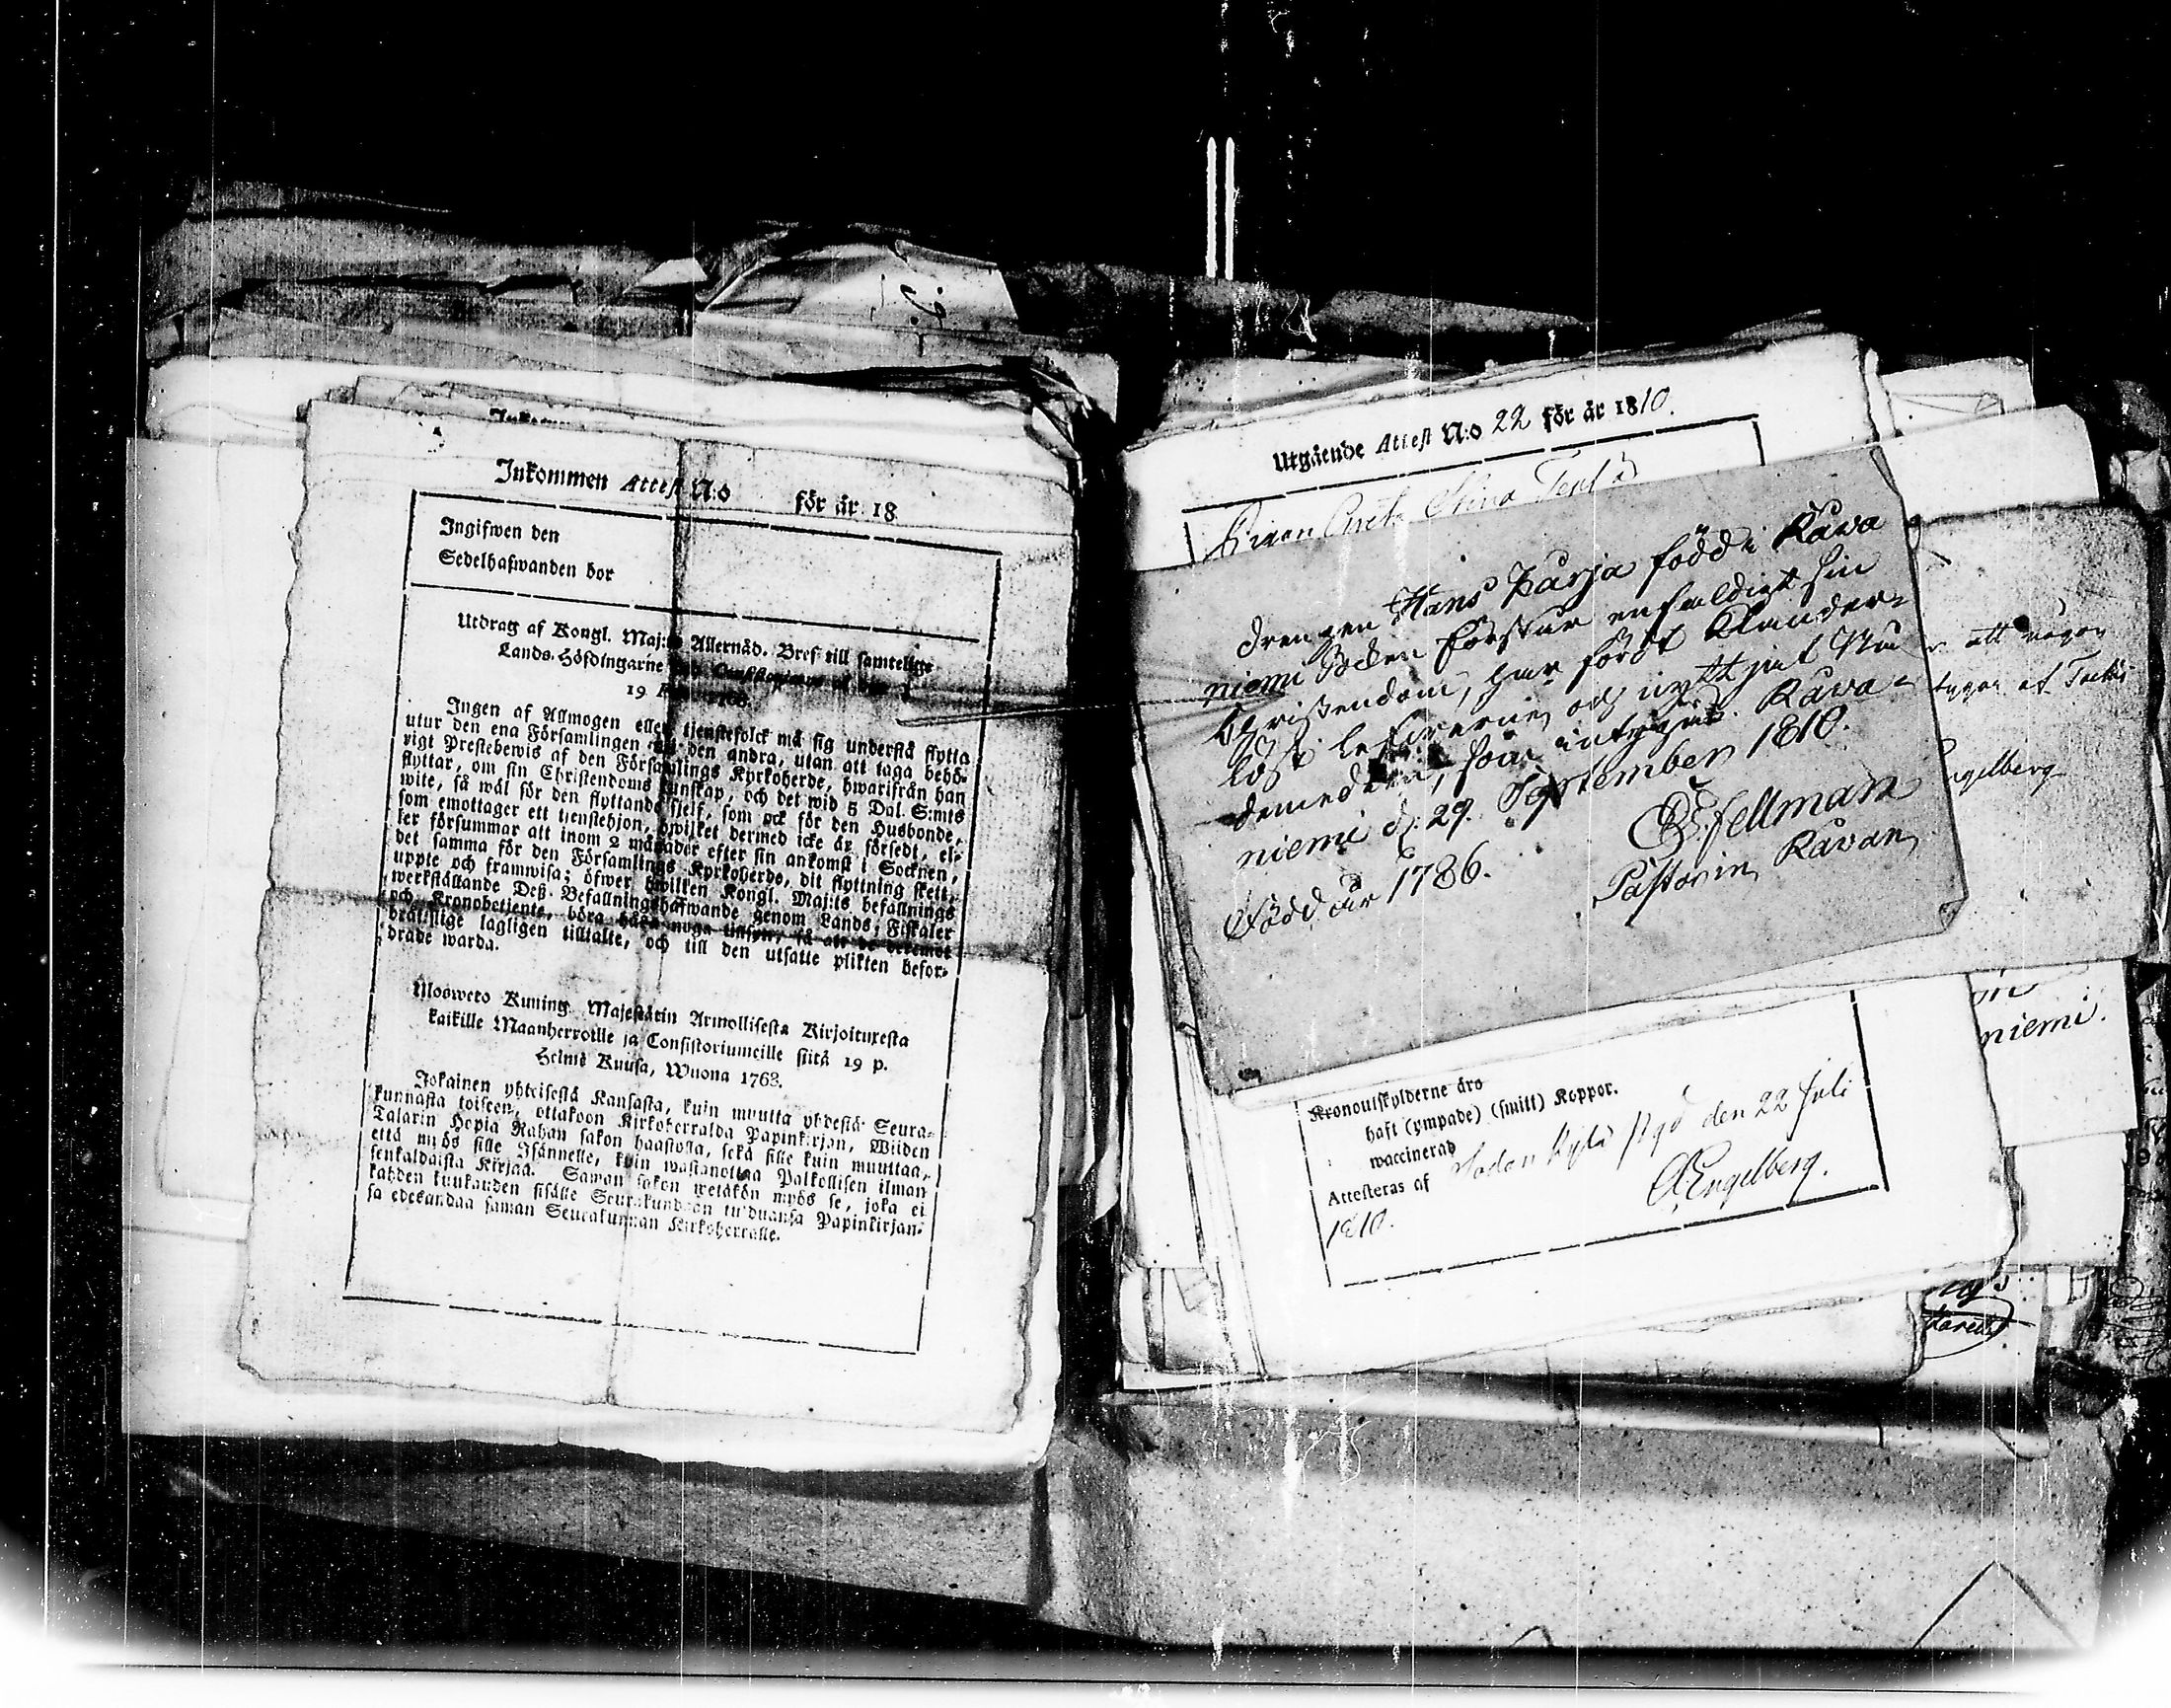 Inkommen Attest N:o för år 18
Ingifwen den
Sedelhafwanden bor
Utdrag af Kongl. Maj:ts Allernåd. Bref till samtelige
Lands-Höfdingarne
19
Ingen af Allmogen eller tjenstefolck må sig understå flytta
utur den ena Församlingen den andra, utan att taga behö-
rigt Prestebewis af den Församlings Kyrkoherde, hwarifrån han
flyttar, om sin Christendoms kunskap, och det wid 5 Dal. S:mts
wite, så wäl för den flyttande sjelf, som ock för den Husbonde,
som emottager ett tjenstehjon, hwilket dermed icke är försedt, el-
ler försummar att inom 2 månader efter sin ankomst i Socknen,
det samma för den Församlings Kyrkoherde, dit flyttning skett,
uppte och framwisa; öfwer hwilken Kongl. Maj:ts befallnings
werkställande Deß Befallningshafwande genom Lands-Fiskaler
och Kronobetjente, böra hafwa noga tillsyn, så att de
bråttslige lagligen tilltalte, och till den utsatte plikten befor-
drade warda.
Ulosweto Kuning. Majestätin Armollisesta Kirjoituxesta
kaikille Maanherroille ja Consistoriumeille siitä 19 p.
Helmi Kuusa, Wuona 1763.
Jokainen yhteisestä Kansasta, kuin muutta yhdestä Seura-
kunnasta toiseen, ottakoon Kirkoherralda Papinkirjan, Wiiden
Talarin Hopia Rahan sakon haastolla, sekä sille kuin muuttaa,
että myös sille Isännelle, kuin wastanottaa Palkollisen ilman
senkaldaista Kirjaa. Saman sakon wetäkön myös se, joka ei
kahden kuukauden sisälle Seurakundaan tulduansa Papinkirjan-
sa edeskandaa saman Seurakunnan Kirkoherralle.
Utgående Attest N:o 22 för år 1810.
Pigan Greta Stina
Drengen Hans Parja född i Råva
niemi Socken förstår enfaldigt sin
Christendom, har fördt Klander-
löst lefverne, och nyttjat Na
demedlen, som intygas. Råva-
niemi d. 29. September 1810.
Fellman
Född år 1786.
Pastor in Råvan
att någon
ngelberg
niemi.
Kronoutskylderne äro
haft (ympade) (smitt) Koppor.
waccinerad
Attesteras af Sodankylä den 22 Juli
1810.
Engelberg.